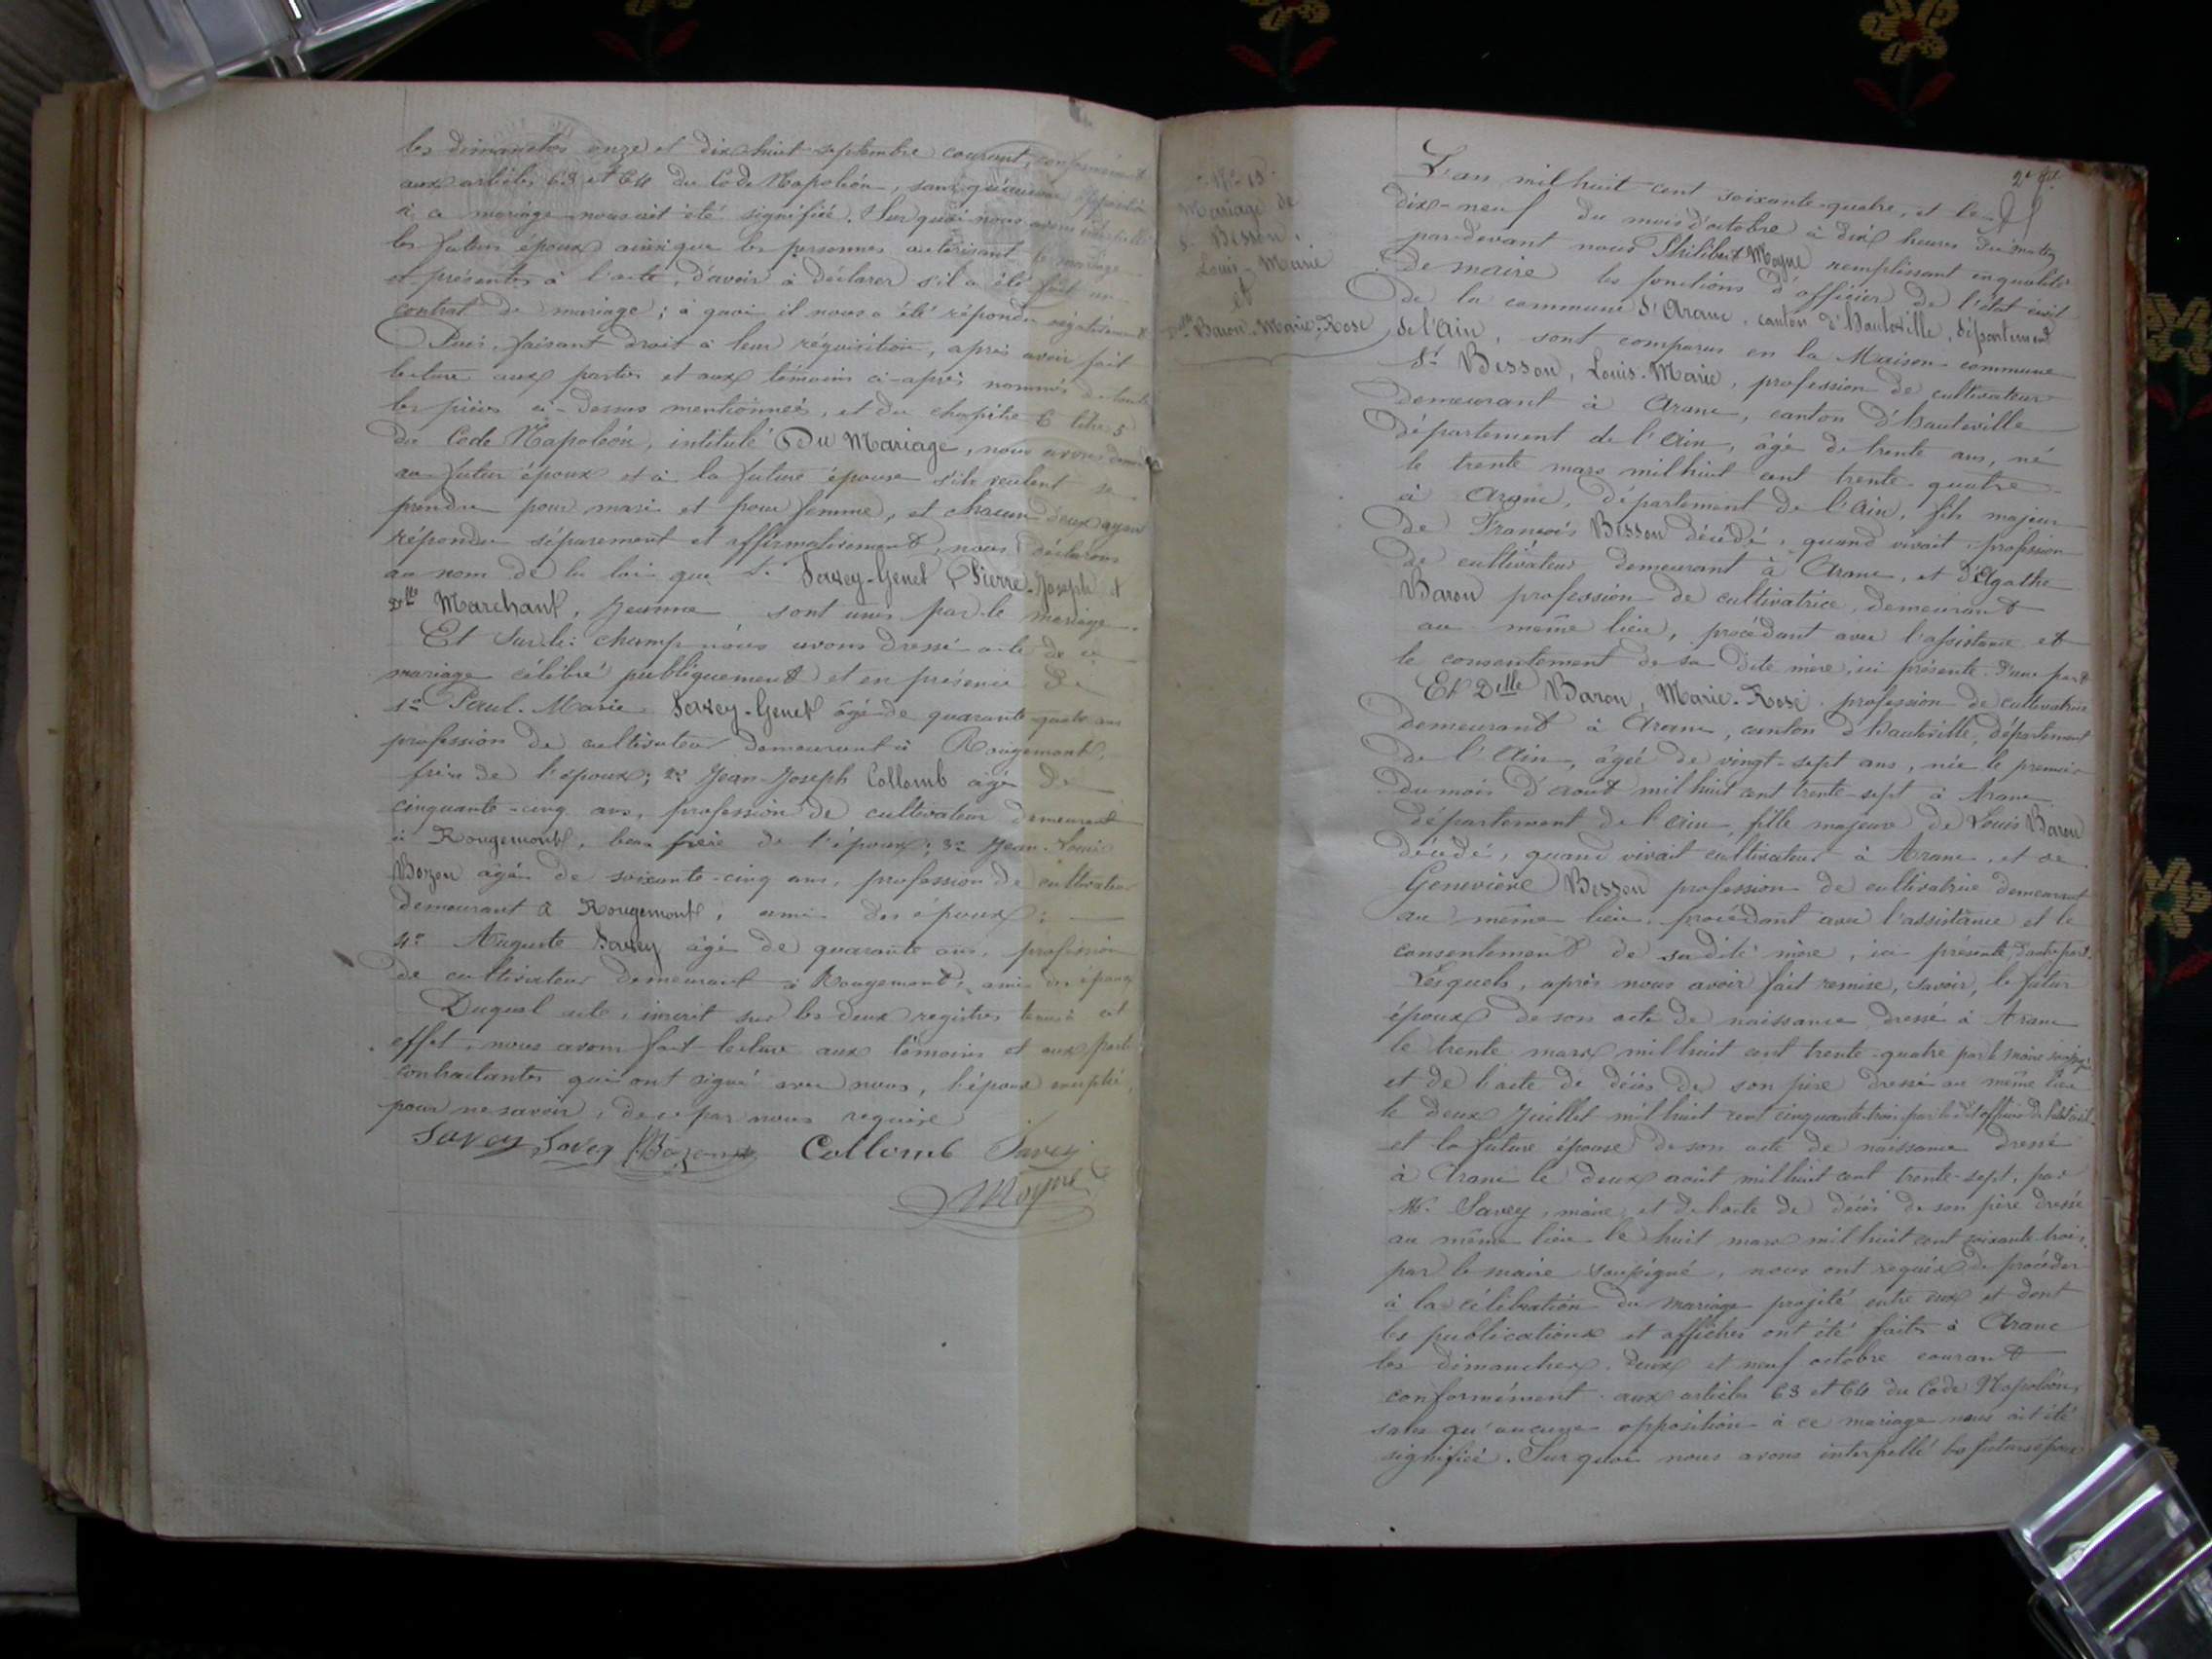 les dimanches onze et dix-huit septembre courant, conformément
aux articles 63 et 64 du Code Napoléon, sans qu'aucune opposition
à ce mariage nous ait été signifiée. Sur quoi nous avons interpellé
les futurs époux ainsi que les personnes autorisant le mariage
et présentes à l'acte, d'avoir à déclarer s'il a été fait un
contrat de mariage; à quoi il nous a été répondu négativement
Puis, faisant droit à leur réquisition, après avoir fait
lecture aux parties et aux témoins ci-après nommés de toutes
les pièces ci-dessus mentionnées, et du chapitre 6 titre 5
du Code Napoléon, intitulé Du Mariage, nous avons demandé
au futur époux et à la future épouse s'ils veulent se
prendre pour mari et pour femme, et chacun d'eux ayant
répondu séparément et affirmativement, nous déclarons
au nom de la loi que Sr. Savey-Genet Pierre-Joseph et
Dlle Marchant, Jeanne sont unis par le mariage.
Et Sur-le-champ nous avons dressé acte de ce
mariage célébré publiquement et en présence de
1º Paul-Marie Savey-Genet âgé de quarante-quatre ans
profession de cultivateur demeurant à Rougemont,
frère de l'époux; 2º Jean-Joseph Collomb âgé de
cinquante-cinq ans, profession de cultivateur demeurant
à Rougemont, beau-frère de l'époux; 3º Jean-Louis
Bozon âgé de soixante-cinq ans, profession de cultivateur
demeurant à Rougemont, ami des époux;
4º Auguste Savey âgé de quarante ans, profession
de cultivateur demeurant à Rougemont, ami des époux
Duquel acte, inscrit sur les deux registres tenus à cet
effet, nous avons fait lecture aux témoins et aux parties
contractantes qui ont signé avec nous, l'épouse exceptée,
pour ne savoir, de ce par nous requise
Savey Savey Bozon Collomb Savey
Moyne
Nº 15
Mariage de
Sr Besson,
Louis-Marie
et
Dlle Baron-Marie-Rose
2e fel
L'an mil huit cent soixante-quatre, et le
dix-neuf du mois d'octobre à dix heures du matin
par-devant nous Philibert Moyne remplissant en qualité
de maire les fonctions d'officier de l'état civil
de la commune d'Aranc, canton d'Hauteville, département
de l'Ain, sont comparus en la Maison-commune
Sr Besson, Louis-Marie, profession de cultivateur
demeurant à Aranc, canton d'Hauteville
département de l'Ain, âgé de trente ans, né
le trente mars mil huit cent trente-quatre
à Aranc, département de l'Ain, fils majeur
de François Besson décédé, quand vivait profession
de cultivateur demeurant à Aranc, et d'Agathe
Baron profession de cultivatrice, demeurant
au même lieu, procédant avec l'assistance et
le consentement de sa dite mère, ici présente d'une part
Et Dlle Baron, Marie-Rose, profession de cultivatrice
demeurant à Aranc, canton d'Hauteville, département
de l'Ain, âgée de vingt-sept ans, née le premier
du mois d'août mil huit cent trente-sept à Aranc
département de l'Ain, fille majeure de Louis Baron
décédé, quand vivait cultivateur à Aranc, et de
Geneviève Besson profession de cultivatrice demeurant
au même lieu, procédant avec l'assistance et le
consentement de sa dite mère, ici présente, d'autre part.
Lesquels, après nous avoir fait remise, savoir, le futur
époux de son acte de naissance dressé à Aranc
le trente mars mil huit cent trente-quatre par le maire
et de l'acte de décès de son père dressé au même lieu
le deux Juillet mil huit cent cinquante-trois par le dit officier de l'état civil
et la future épouse de son acte de naissance dressé
à Aranc le deux août mil huit cent trente-sept, par
Mr. Savey, maire, et de l'acte de décès de son père dressé
au même lieu le huit mars mil huit cent soixante-trois,
par le maire soussigné, nous ont requis de procéder
à la célébration du mariage projeté entre eux et dont
les publications et affiches ont été faites à Aranc
les dimanches deux et neuf octobre courant
conformément aux articles 63 et 64 du Code Napoléon,
sans qu'aucune opposition à ce mariage nous ait été
signifiée. Sur quoi nous avons interpellé les futurs époux